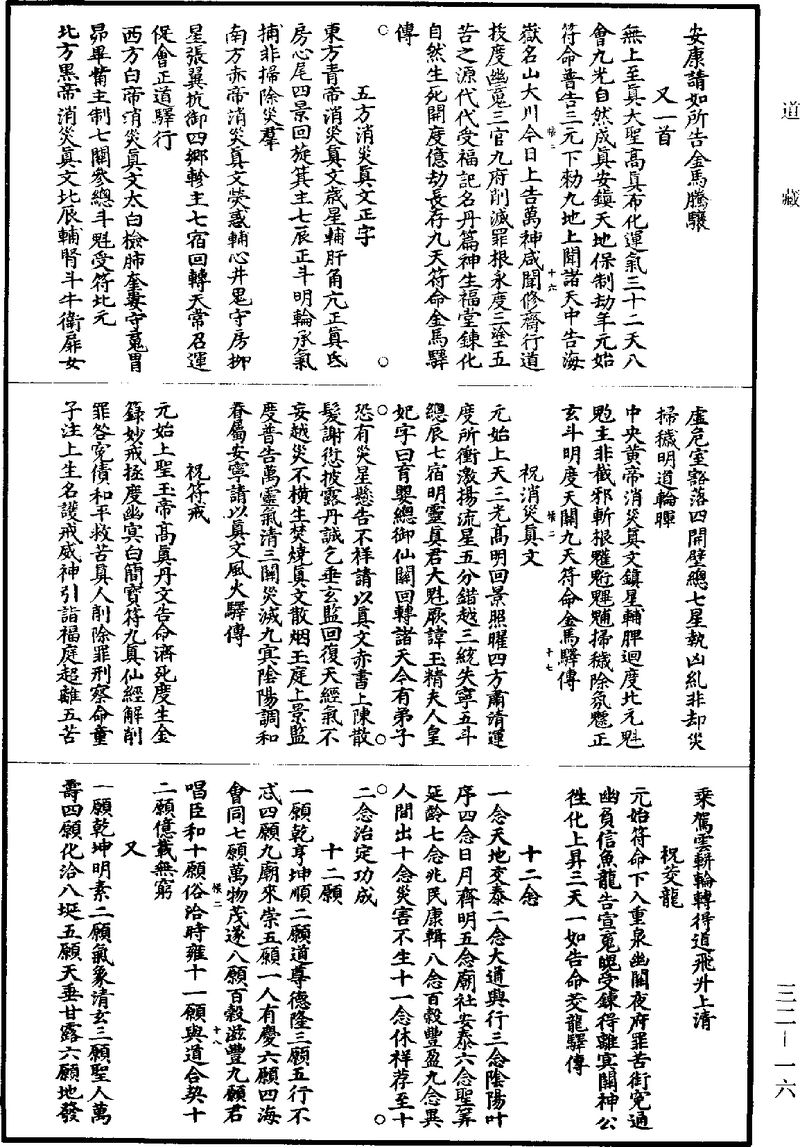 道藏
安康請如所告金馬騰驤
又一首
無上至真大聖高真布化運氣三十二天八
會九光自然成真安鎮天地保制劫年元始
符命普告三元下勑九地上聞諸天中告海
嶽名山大川今日上告萬神咸聞修齋行道
拔度幽䰟三官九府削滅罪根永度三塗五
苦之源代代受福記名丹篇神生福堂鍊化
自然生死開度億劫長存九天符命金馬驛
傳
五方消災真文正字
東方青帝消災真文歲星輔肝角亢正真氐
房心尾四景回旋箕主七辰正斗明輪承氣
捕非掃除災羣
南方赤帝消災真文熒惑輔心井鬼守房柳
星張翼抗御四鄉軫主七宿回轉天常召運
促會正道驛行
西方白帝消災真文太白檢肺奎婁守䰟胃
昴畢觜主制七關參總斗魁受符北元
北方黑帝消災真文北辰輔腎斗牛衛扉女
虛危室豁落四開壁總七星執凶糺非却災
掃穢明道輪暉
中央黃帝消災真文鎮星輔脾迴度北元魁
䰢主非截邪斬根掃穢除氛正
玄斗明度天關九天符命金馬驛傳
祝消災真文
元始上天三光高明回景照曜四方肅清運
度所衝激揚流星五分錯越三統失寧五斗
總辰七宿明靈真君大魁歌諱玉精夫人皇
妃字曰育嬰總御仙關回轉諸天今有弟子
恐有災星懸告不祥請以真文赤書上陳散
髮謝愆披露丹誠乞垂玄監回復天經氣不
妄越災不橫生焚燒真文散烟玉庭上景監
度普告萬靈氣清三關災滅九冥陰陽調和
眷屬安寧請以真文風火驛傳
祝符戒
元始上聖玉帝高真丹文告命濟死度生金
籙妙戒拯度幽冥白簡寶符九真仙經解削
罪咎冤債和平救苦真人削除罪刑察命童
子注上生名護戒威神引詣福庭超離五苦
乘駕雲輧輪轉得道飛升上清
祝茭龍
元始符命下入重泉幽關夜府罪苦銜冤通
幽負信魚龍告宣䰟魄受鍊得離冥關神公
徃化上昇三天一如告命茭龍驛傳
十二念
一念天地交泰二念大道興行三念陰陽叶
序四念日月齊明五念廟社安泰六念聖筭
延齡七念兆民康輯八念百穀豐盈九念異
人間出十念災害不生十一念休祥荐至十
二念治定功成
十二願
一願乾亨坤順二願道尊德隆三願五行不
忒四願九廟來崇五願一人有慶六願四海
會同七願萬物茂遂八願百穀滋豐九願君
唱臣和十願俗洽時雍十一願與道合契十
二願億載無窮
又
一願乾坤明素二願氣象清玄三願聖人萬
壽四願化洽八埏五願天垂甘露六願地發
三二—一六